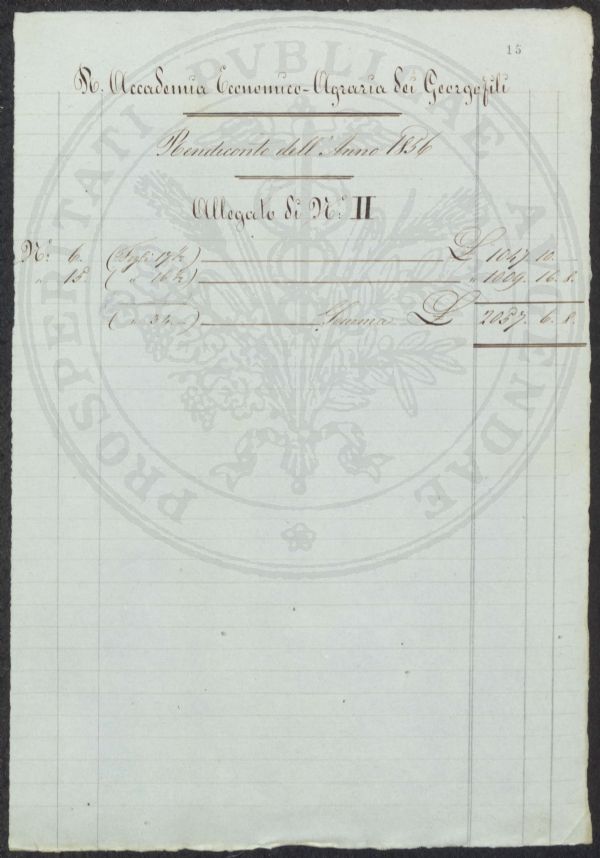 15
PROSPERITATI PVBLICAE AVGENDAE
R. Accademia Economico-Agraria dei Georgofili
Rendiconto dell'Anno 1856
Allegato di N.° II
N.° 6. (Fogli 17½) £ 1047. 10. _
" 15. ( " 16½) " 1009. 16. 8.
( " 34 _) Somma £ 2057. 6. 8.